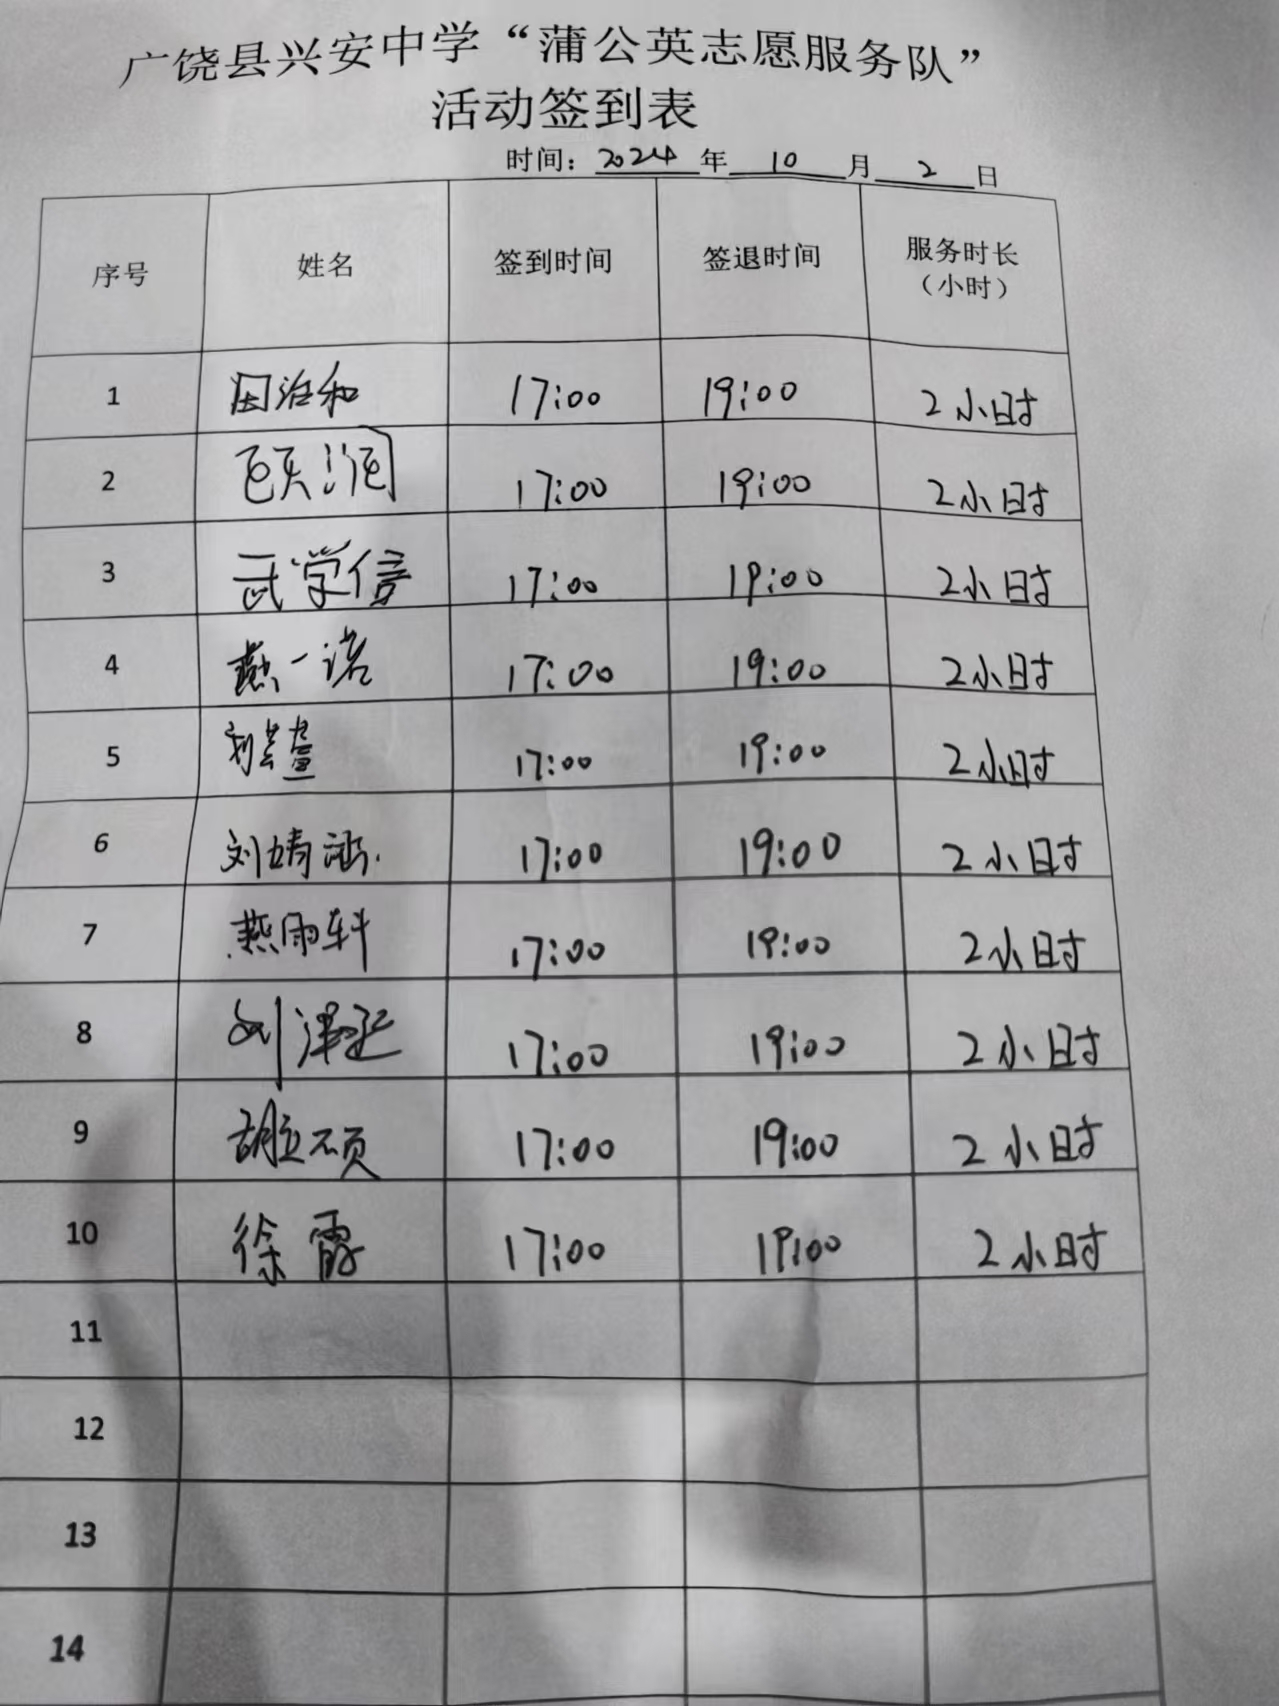 广饶县兴安中学“蒲公英志愿服务队”
活动签到表
时间：2024年10月2日
序号 姓名 签到时间 签退时间 服务时长（小时）
1 17:00 19:00 2小时
2 17:00 19:00 2小时
3 武学信 17:00 19:00 2小时
4 燕一诺 17:00 19:00 2小时
5 刘芸萱 17:00 19:00 2小时
6 刘婧涵 17:00 19:00 2小时
7 燕雨轩 17:00 19:00 2小时
8 刘泽延 17:00 19:00 2小时
9 胡立硕 17:00 19:00 2小时
10 徐霞 17:00 19:00 2小时
11
12
13
14